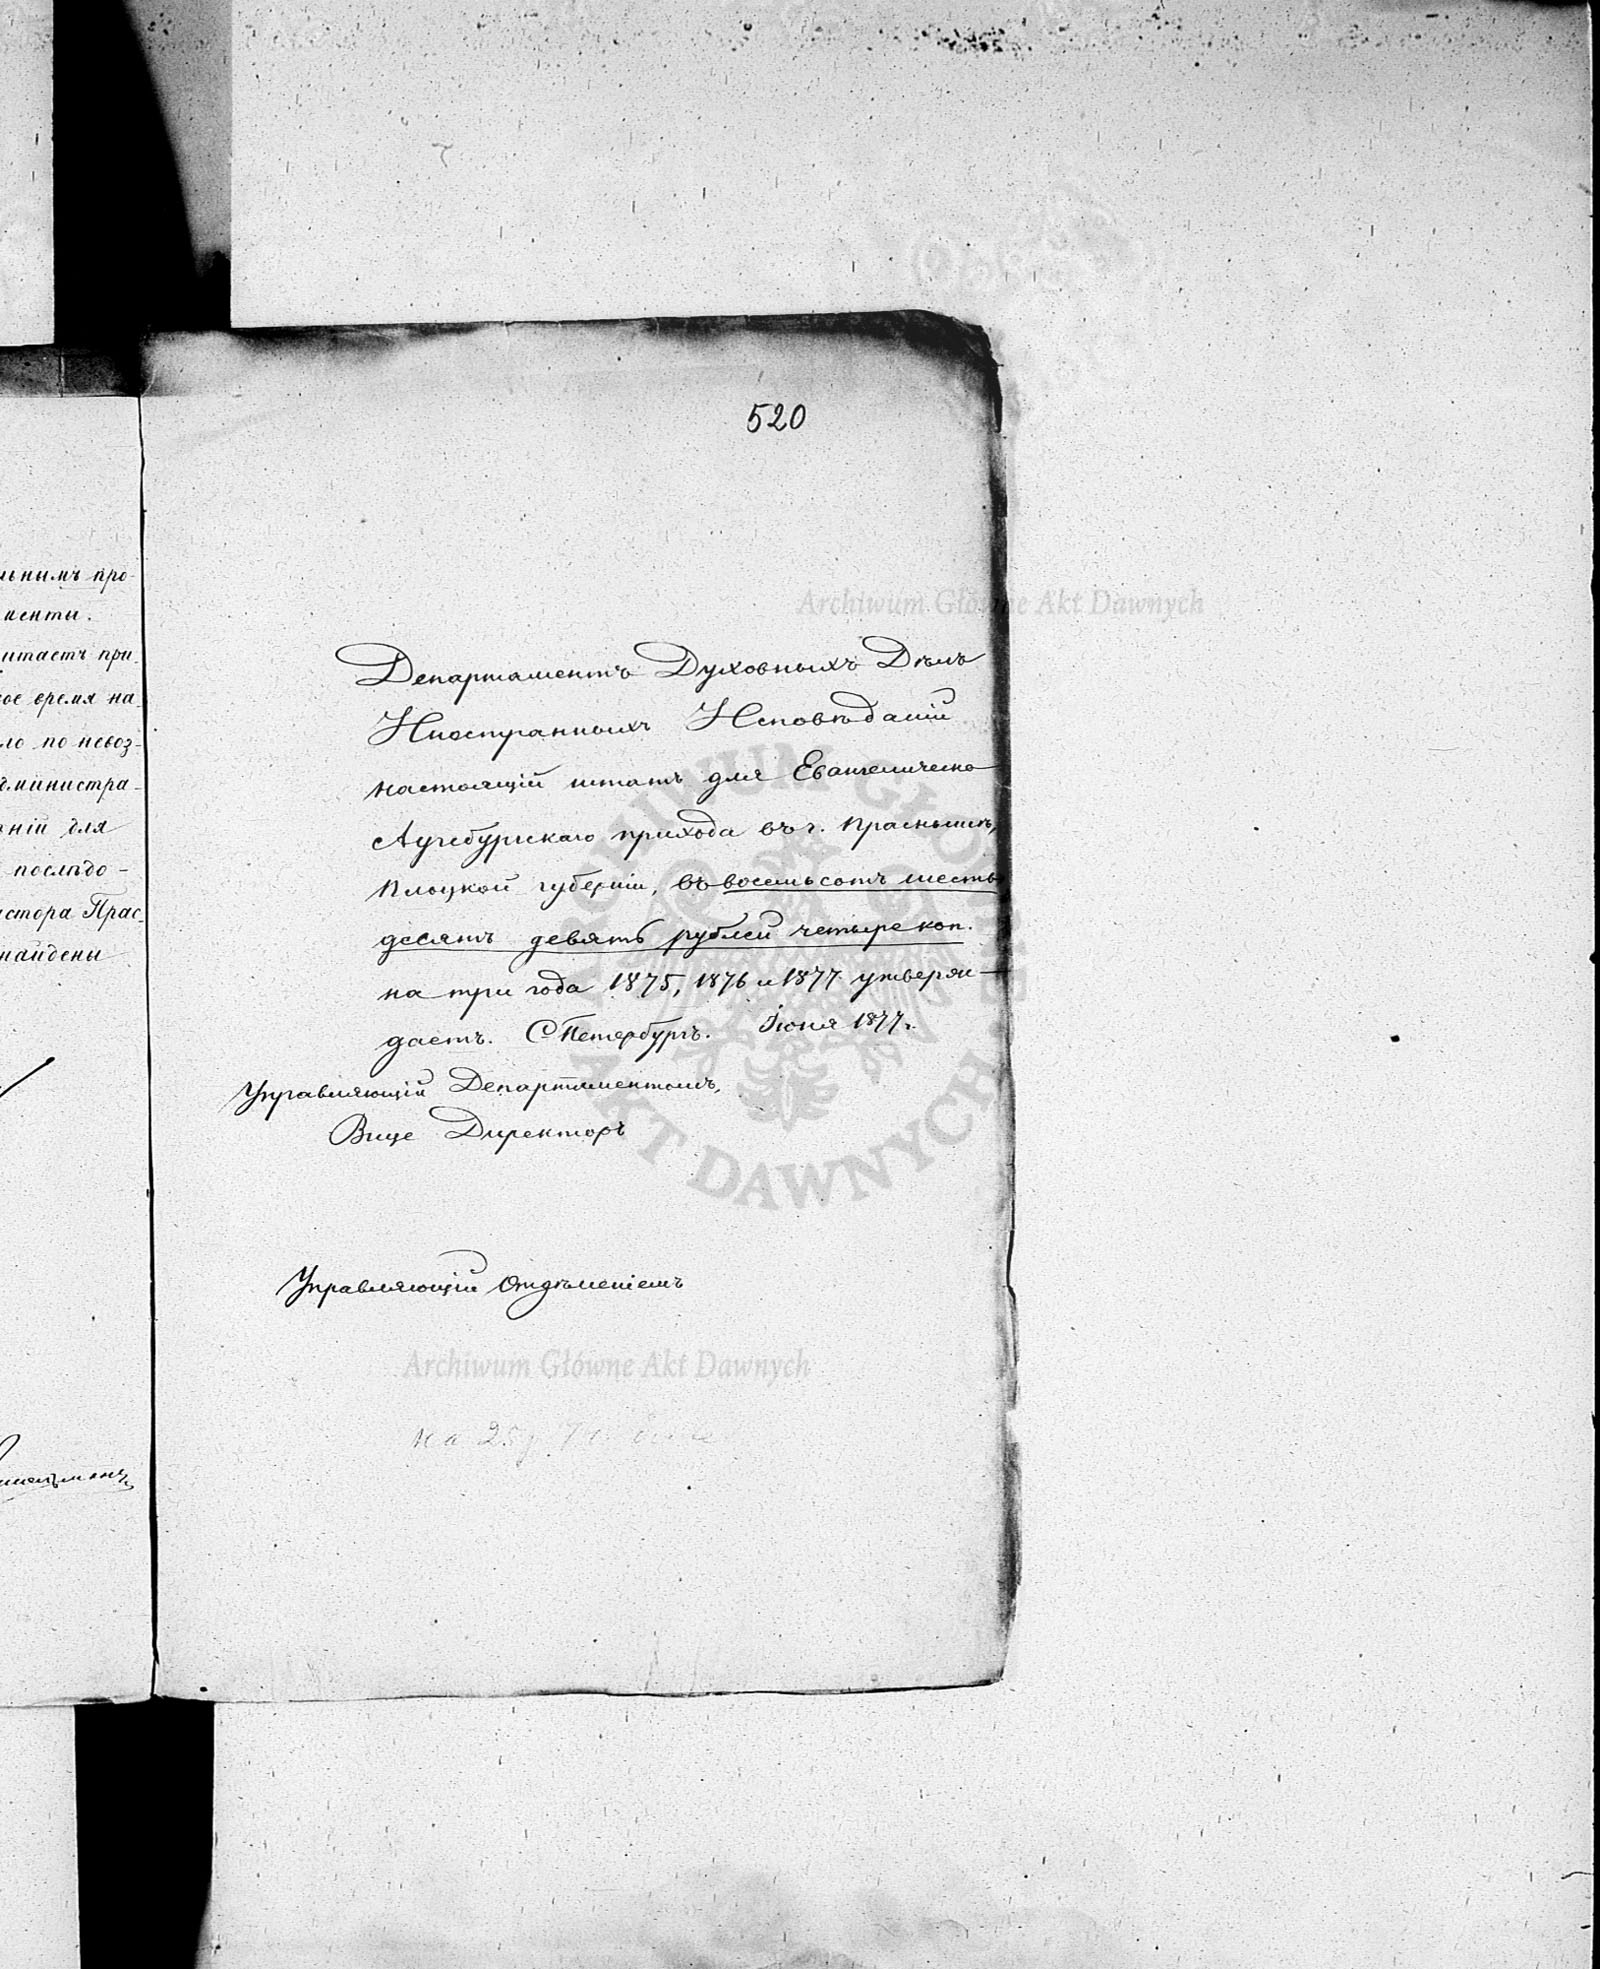 520
льнымъ про-
менты.
итаетъ при-
ое время на-
ло по невоз-
дминистра-
ній для
послѣдо-
стора Прас-
найдены
Департаментъ Духовныхъ Дѣлъ
Иностранныхъ Исповѣданій
настоящій штатъ для Евангелическо
Аугсбургскаго прихода въ г. Праснышѣ,
Плоцкой губерніи, въ восемьсотъ шесть
десятъ девять рублей четыре коп.
на три года 1875, 1876 и 1877 утверж-
даетъ. С Петербургъ. Іюня 1877 г.
Управляющій Департаментомъ,
Вице Директоръ
Управляющій Отдѣленіемъ
на 25
Archiwum Główne Akt Dawnych
Archiwum Główne Akt Dawnych
ARCHIWUM GŁÓWNE AKT DAWNYCH